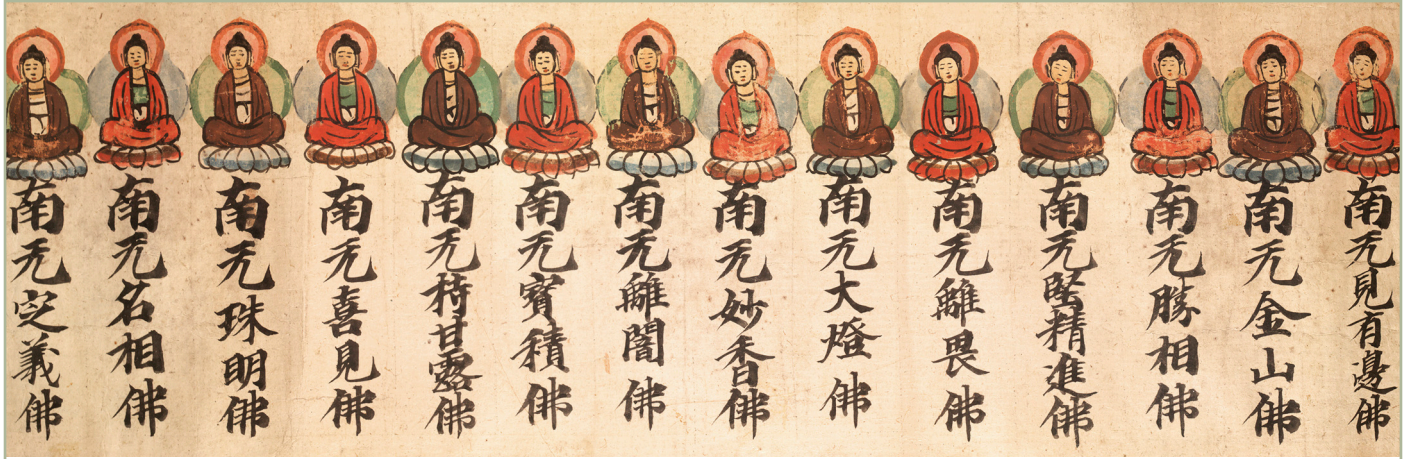 南无見有邊佛
南无金山佛
南无勝相佛
南无堅精進佛
南无離畏佛
南无大燈佛
南无妙香佛
南无離闇佛
南无寶積佛
南无持甘露佛
南无喜見佛
南无珠明佛
南无名相佛
南无定義佛